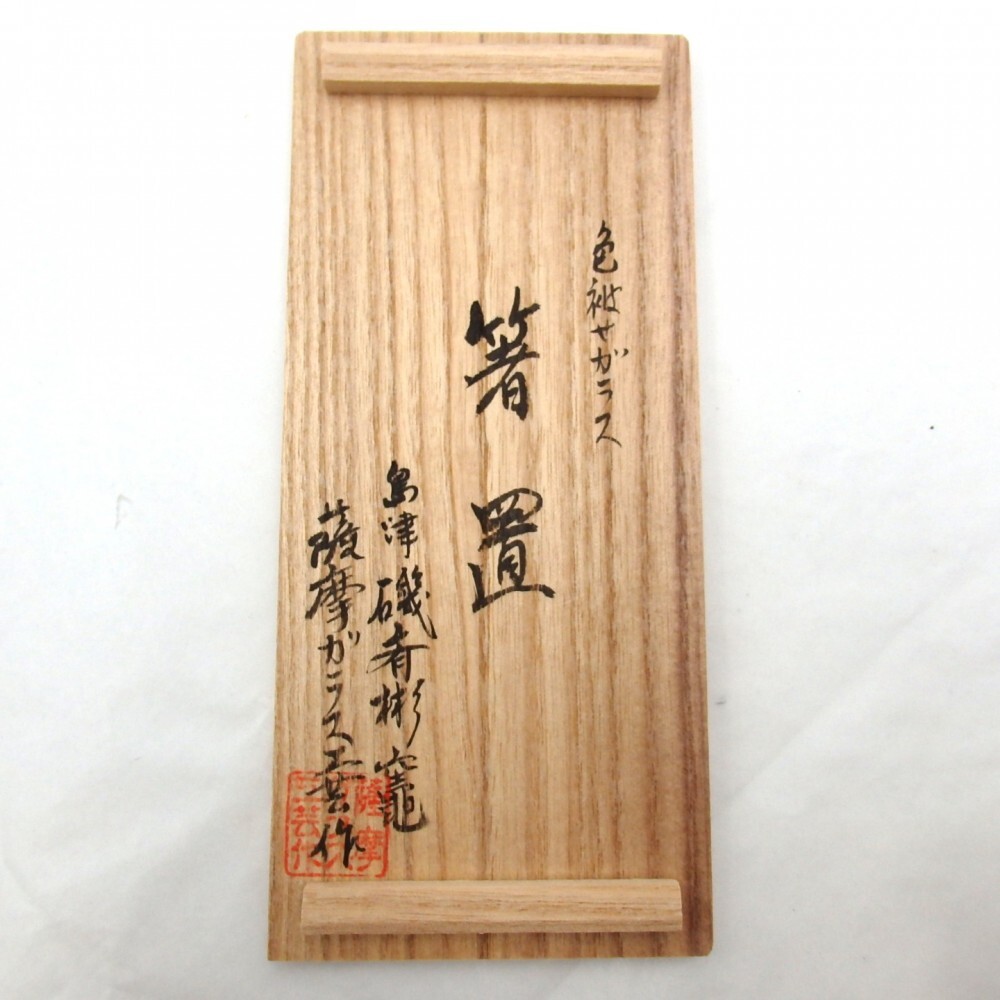 色被せガラス
箸置
島津磯斉彬竈
薩摩ガラス工芸作
薩摩
芸作